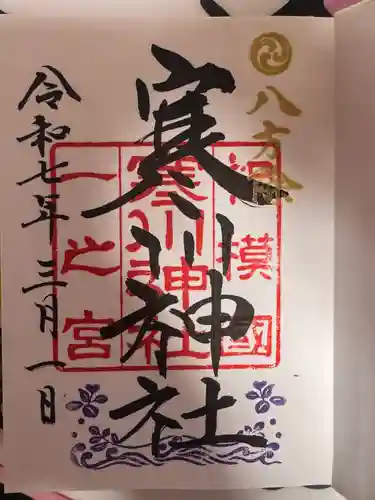 八方除
寒川神社
相模國
寒川神社
一之宮
令和七年三月一日